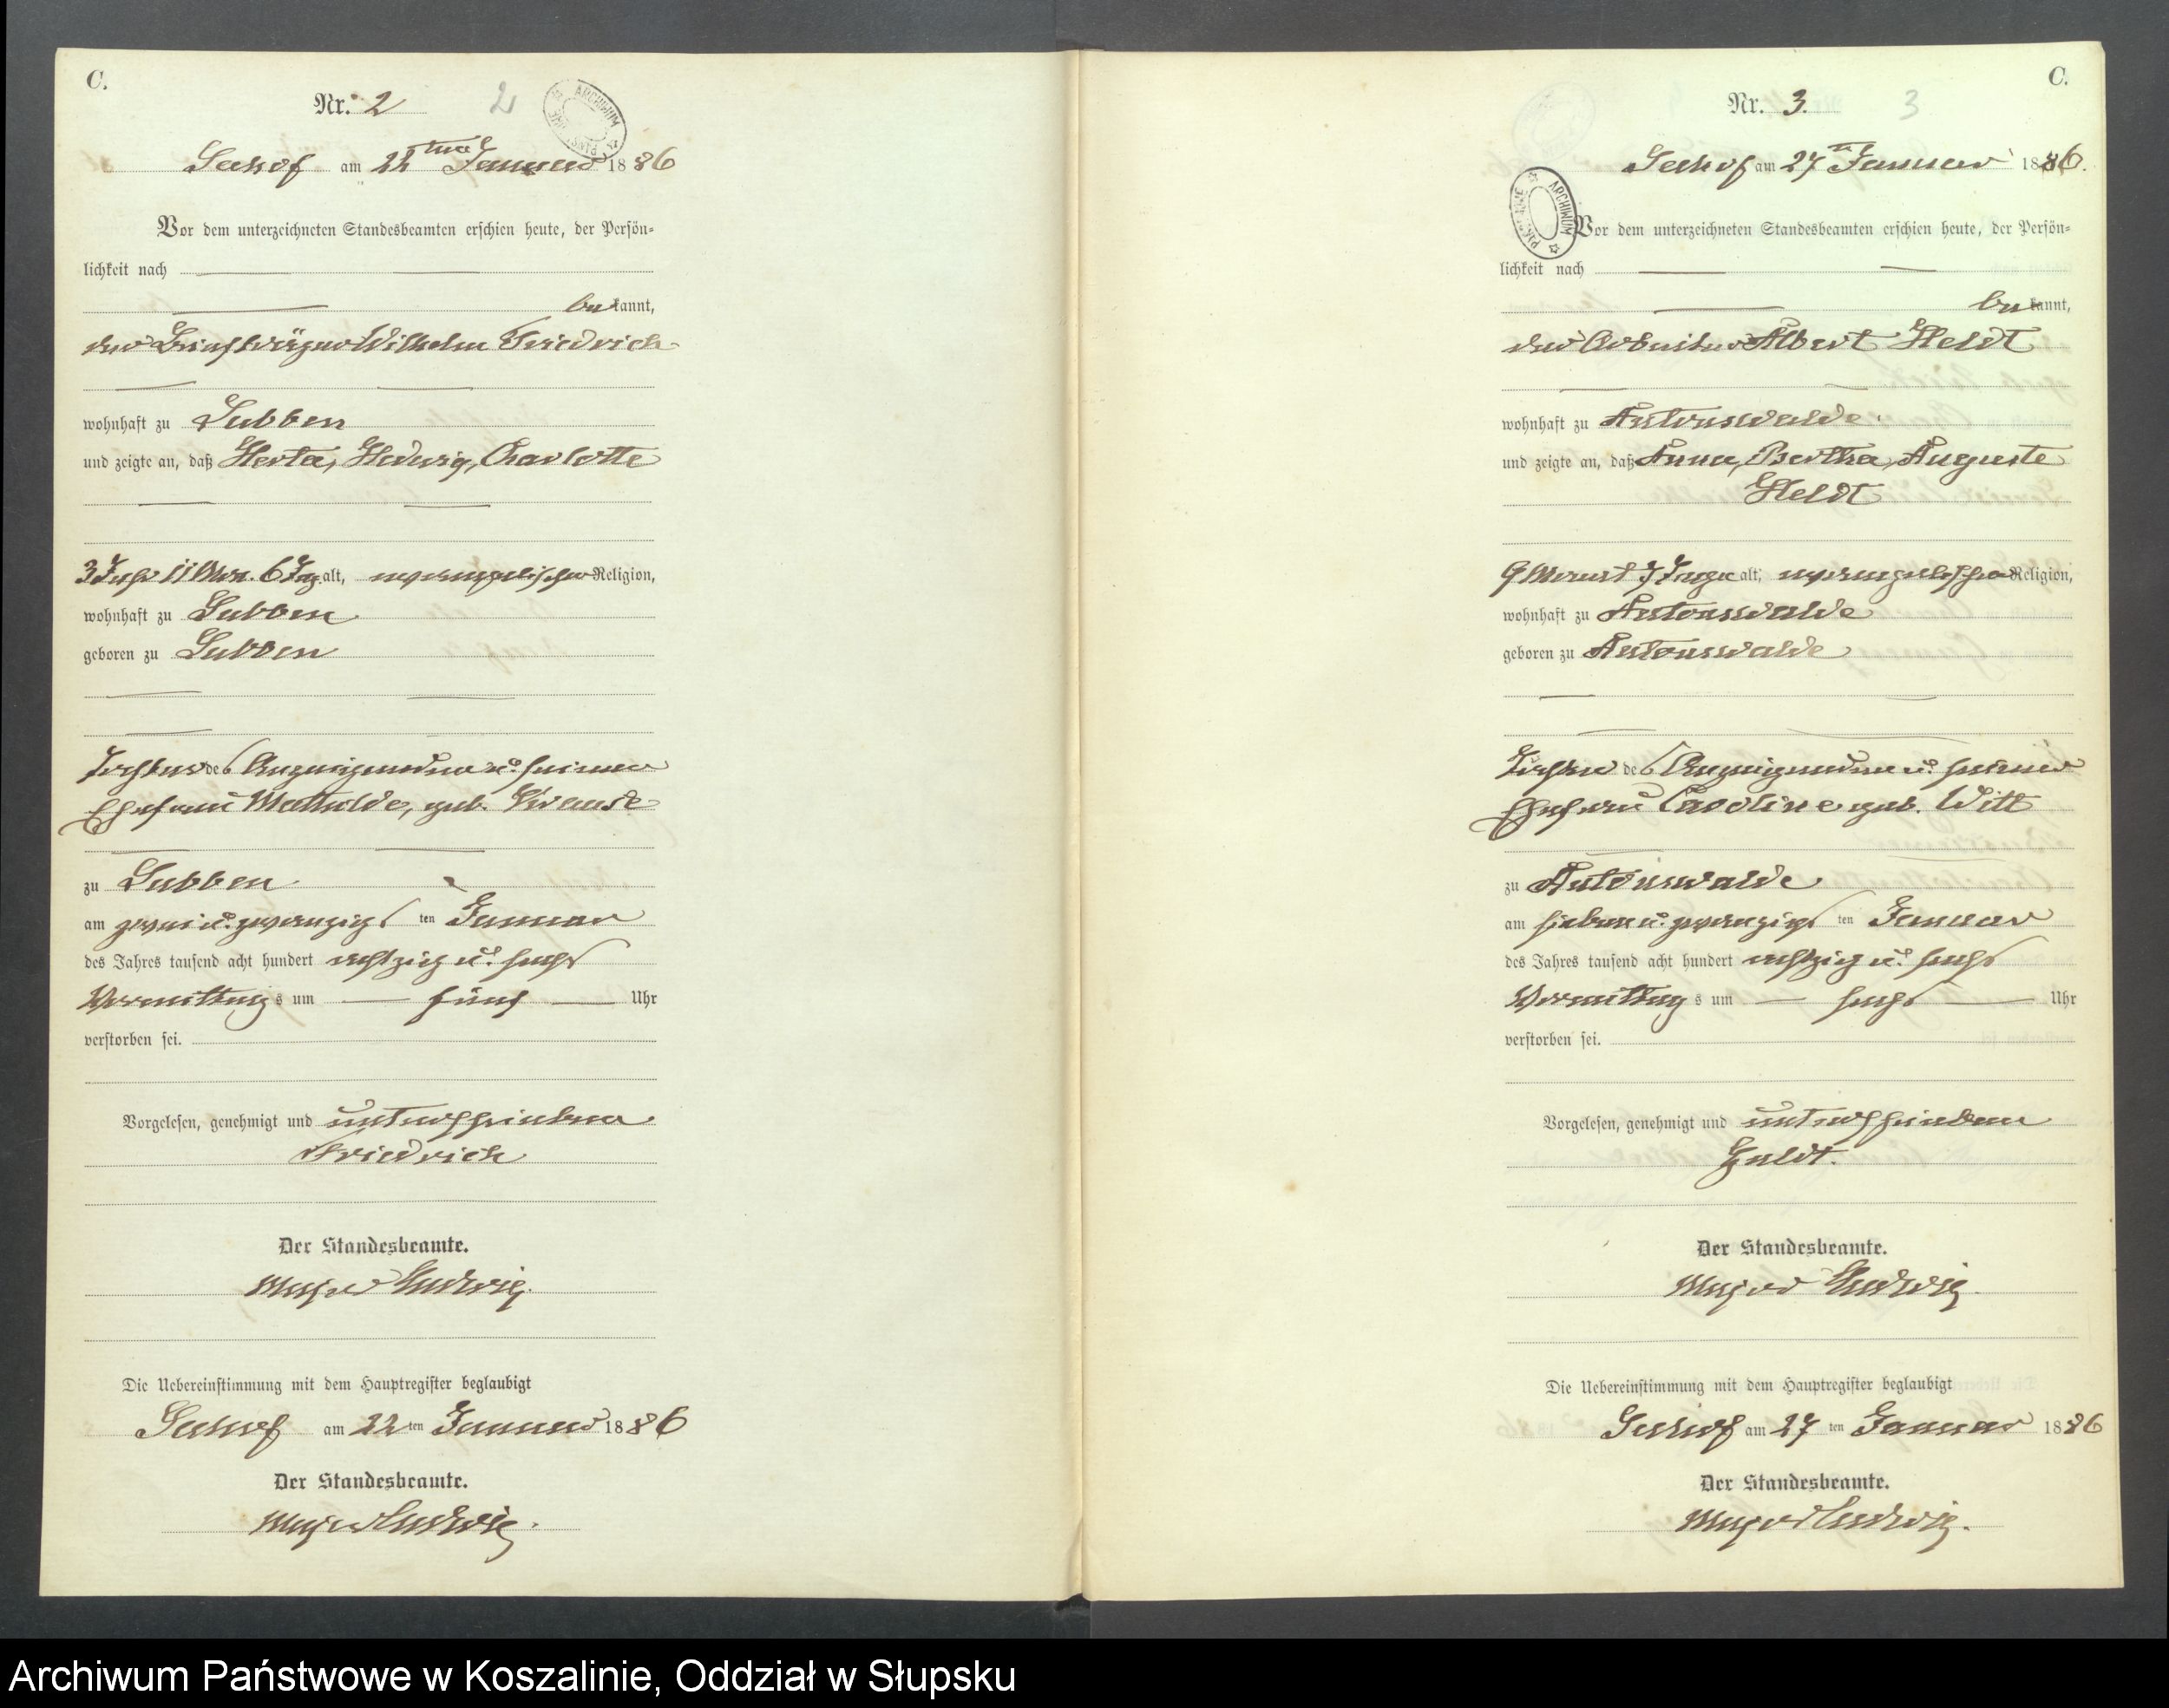 C.
Nr. 2
2
Seehof am 22ten Januar 1886
Vor dem unterzeichneten Standesbeamten erschien heute, der Persön-
lichkeit nach
bekannt,
der Briefträger Wilhelm Friedrich
wohnhaft zu Lubben
und zeigte an, daß Herta, Hedwig, Charlotte
3 Jahr 11 Mon. 6 Tag alt, evangelischer Religion,
wohnhaft zu Lubben
geboren zu Lubben
Tochter des Anzeigenden u. seiner
Ehefrau Mathilde, geb. Krause
zu Lubben
am zwei u. zwanzigsten Januar
des Jahres tausend acht hundert achtzig u. sechs
Vormittags um fünf Uhr
verstorben sei.
Vorgelesen, genehmigt und unterschrieben
Friedrich
Der Standesbeamte.
Major Ludwig.
Die Uebereinstimmung mit dem Hauptregister beglaubigt
Seehof am 22ten Januar 1886
Der Standesbeamte.
Major Ludwig.
C.
Nr. 3.
3
Seehof am 27ten Januar 1886.
Vor dem unterzeichneten Standesbeamten erschien heute, der Persön-
lichkeit nach
bekannt,
der Arbeiter Albert Heldt
wohnhaft zu Antonswalde
und zeigte an, daß Anna, Bertha, Auguste
Heldt
9 Monat 7 Tage alt, evangelischer Religion,
wohnhaft zu Antonswalde
geboren zu Antonswalde
Tochter des Anzeigenden u. seiner
Ehefrau Caroline geb. Witt
zu Antonswalde
am sieben u. zwanzigsten Januar
des Jahres tausend acht hundert achtzig u. sechs
Vormittags um sechs Uhr
verstorben sei.
Vorgelesen, genehmigt und unterschrieben
Heldt.
Der Standesbeamte.
Major Ludwig.
Die Uebereinstimmung mit dem Hauptregister beglaubigt
Seehof am 27ten Januar 1886
Der Standesbeamte.
Major Ludwig.
Archiwum Państwowe w Koszalinie, Oddział w Słupsku